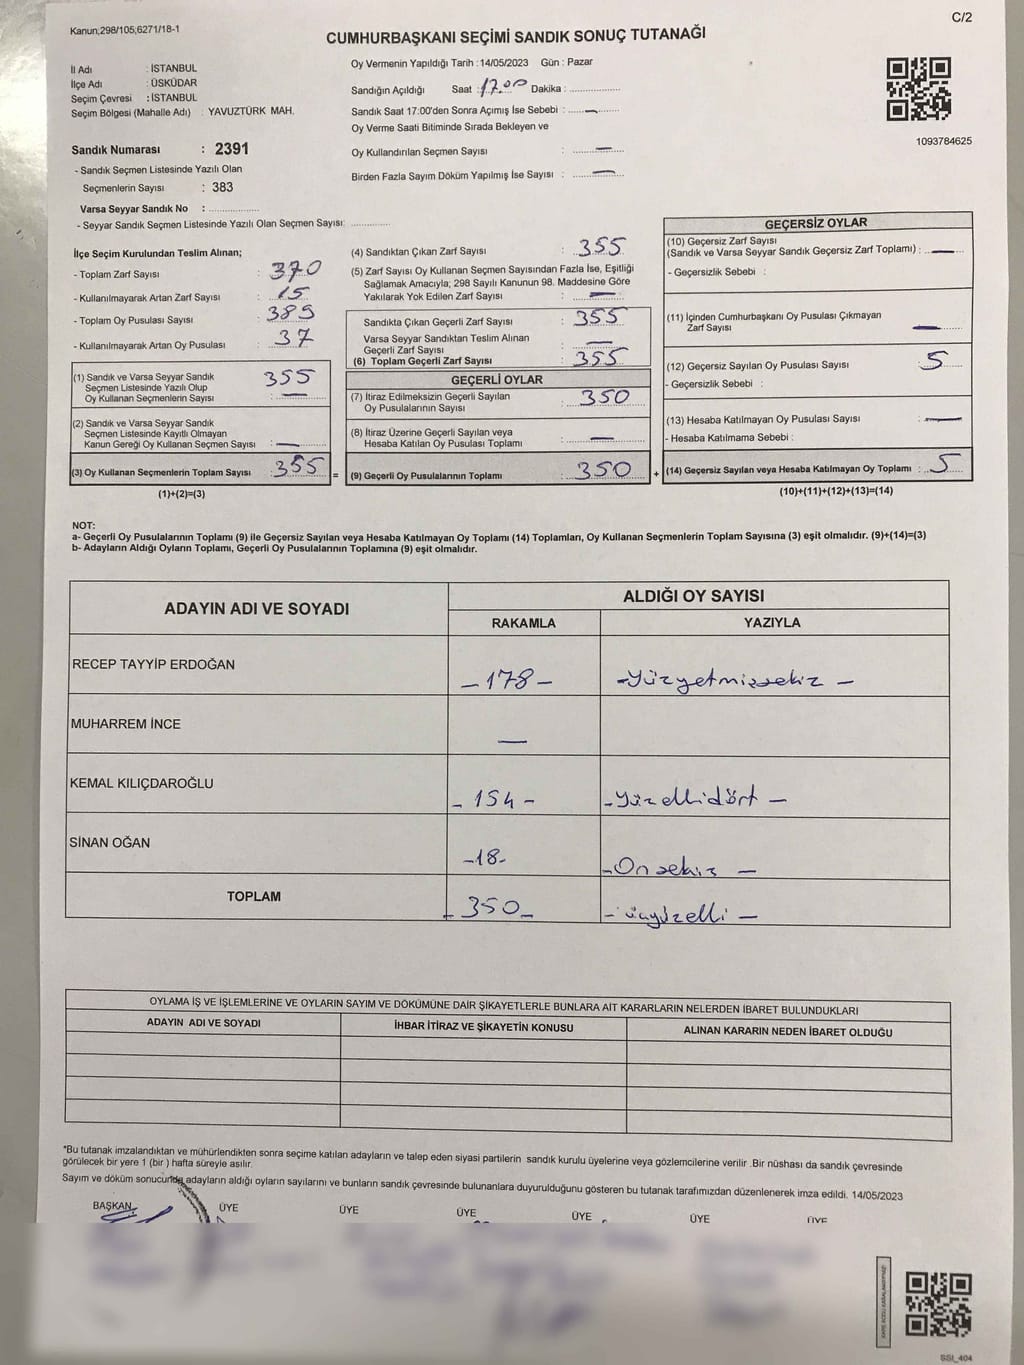 Kanun;298/105;6271/18-1
C/2
CUMHURBAŞKANI SEÇİMİ SANDIK SONUÇ TUTANAĞI
İl Adı : İSTANBUL
İlçe Adı : ÜSKÜDAR
Seçim Çevresi : İSTANBUL
Seçim Bölgesi (Mahalle Adı) : YAVUZTÜRK MAH.
Oy Vermenin Yapıldığı Tarih : 14/05/2023 Gün : Pazar
Sandığın Açıldığı Saat : 17.00 Dakika : ....................
Sandık Saat 17:00'den Sonra Açımış İse Sebebi : —
Oy Verme Saati Bitiminde Sırada Bekleyen ve
Oy Kullandırılan Seçmen Sayısı : —
Birden Fazla Sayım Döküm Yapılmış İse Sayısı : —
1093784625
Sandık Numarası : 2391
- Sandık Seçmen Listesinde Yazılı Olan
Seçmenlerin Sayısı : 383
Varsa Seyyar Sandık No : ....................
- Seyyar Sandık Seçmen Listesinde Yazılı Olan Seçmen Sayısı: ...............
İlçe Seçim Kurulundan Teslim Alınan;
- Toplam Zarf Sayısı : 370
- Kullanılmayarak Artan Zarf Sayısı : 15
- Toplam Oy Pusulası Sayısı : 389
- Kullanılmayarak Artan Oy Pusulası : 37
(1) Sandık ve Varsa Seyyar Sandık 355
Seçmen Listesinde Yazılı Olup
Oy Kullanan Seçmenlerin Sayısı : —
(2) Sandık ve Varsa Seyyar Sandık
Seçmen Listesinde Kayıtlı Olmayan
Kanun Gereği Oy Kullanan Seçmen Sayısı : —
(3) Oy Kullanan Seçmenlerin Toplam Sayısı : 355 =
(1)+(2)=(3)
(4) Sandıktan Çıkan Zarf Sayısı : 355
(5) Zarf Sayısı Oy Kullanan Seçmen Sayısından Fazla İse, Eşitliği
Sağlamak Amacıyla; 298 Sayılı Kanunun 98. Maddesine Göre
Yakılarak Yok Edilen Zarf Sayısı : —
Sandıkta Çıkan Geçerli Zarf Sayısı : 355
Varsa Seyyar Sandıktan Teslim Alınan
Geçerli Zarf Sayısı : —
(6) Toplam Geçerli Zarf Sayısı : 355
GEÇERLİ OYLAR
(7) İtiraz Edilmeksizin Geçerli Sayılan
Oy Pusulalarının Sayısı : 350
(8) İtiraz Üzerine Geçerli Sayılan veya
Hesaba Katılan Oy Pusulası Toplamı : —
(9) Geçerli Oy Pusulalarının Toplamı : 350 +
GEÇERSİZ OYLAR
(10) Geçersiz Zarf Sayısı
(Sandık ve Varsa Seyyar Sandık Geçersiz Zarf Toplamı) : —
- Geçersizlik Sebebi :
(11) İçinden Cumhurbaşkanı Oy Pusulası Çıkmayan
Zarf Sayısı —
(12) Geçersiz Sayılan Oy Pusulası Sayısı : 5
- Geçersizlik Sebebi :
(13) Hesaba Katılmayan Oy Pusulası Sayısı : —
- Hesaba Katılmama Sebebi :
(14) Geçersiz Sayılan veya Hesaba Katılmayan Oy Toplamı : 5
(10)+(11)+(12)+(13)=(14)
NOT:
a- Geçerli Oy Pusulalarının Toplamı (9) ile Geçersiz Sayılan veya Hesaba Katılmayan Oy Toplamı (14) Toplamları, Oy Kullanan Seçmenlerin Toplam Sayısına (3) eşit olmalıdır. (9)+(14)=(3)
b- Adayların Aldığı Oyların Toplamı, Geçerli Oy Pusulalarının Toplamına (9) eşit olmalıdır.
ADAYIN ADI VE SOYADI
ALDIĞI OY SAYISI
RAKAMLA YAZIYLA
RECEP TAYYİP ERDOĞAN -178- -Yüzyetmişsekiz -
MUHARREM İNCE —
KEMAL KILIÇDAROĞLU - 154 - -Yüz ellidört -
SİNAN OĞAN -18- -On sekiz -
TOPLAM - 350 - - üçyüzelli -
OYLAMA İŞ VE İŞLEMLERİNE VE OYLARIN SAYIM VE DÖKÜMÜNE DAİR ŞİKAYETLERLE BUNLARA AİT KARARLARIN NELERDEN İBARET BULUNDUKLARI
ADAYIN ADI VE SOYADI İHBAR İTİRAZ VE ŞİKAYETİN KONUSU ALINAN KARARIN NEDEN İBARET OLDUĞU
*Bu tutanak imzalandıktan ve mühürlendikten sonra seçime katılan adayların ve talep eden siyasi partilerin sandık kurulu üyelerine veya gözlemcilerine verilir .Bir nüshası da sandık çevresinde
görülecek bir yere 1 (bir ) hafta süreyle asılır.
Sayım ve döküm sonucunda adayların aldığı oyların sayılarını ve bunların sandık çevresinde bulunanlara duyurulduğunu gösteren bu tutanak tarafımızdan düzenlenerek imza edildi. 14/05/2023
BAŞKAN ÜYE ÜYE ÜYE ÜYE ÜYE ÜYE
SSI_404